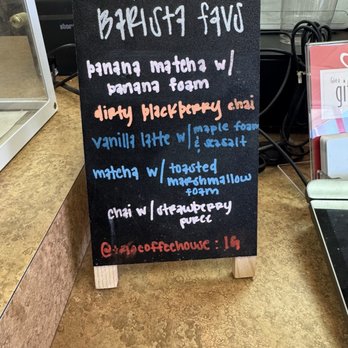 BARISTA FAVS
banana matcha w/
banana foam
dirty blackberry chai
vanilla latte w/ maple foam
& seasalt
matcha w/ toasted
marshmallow
foam
chai w/ strawberry
puree
: IG
gi